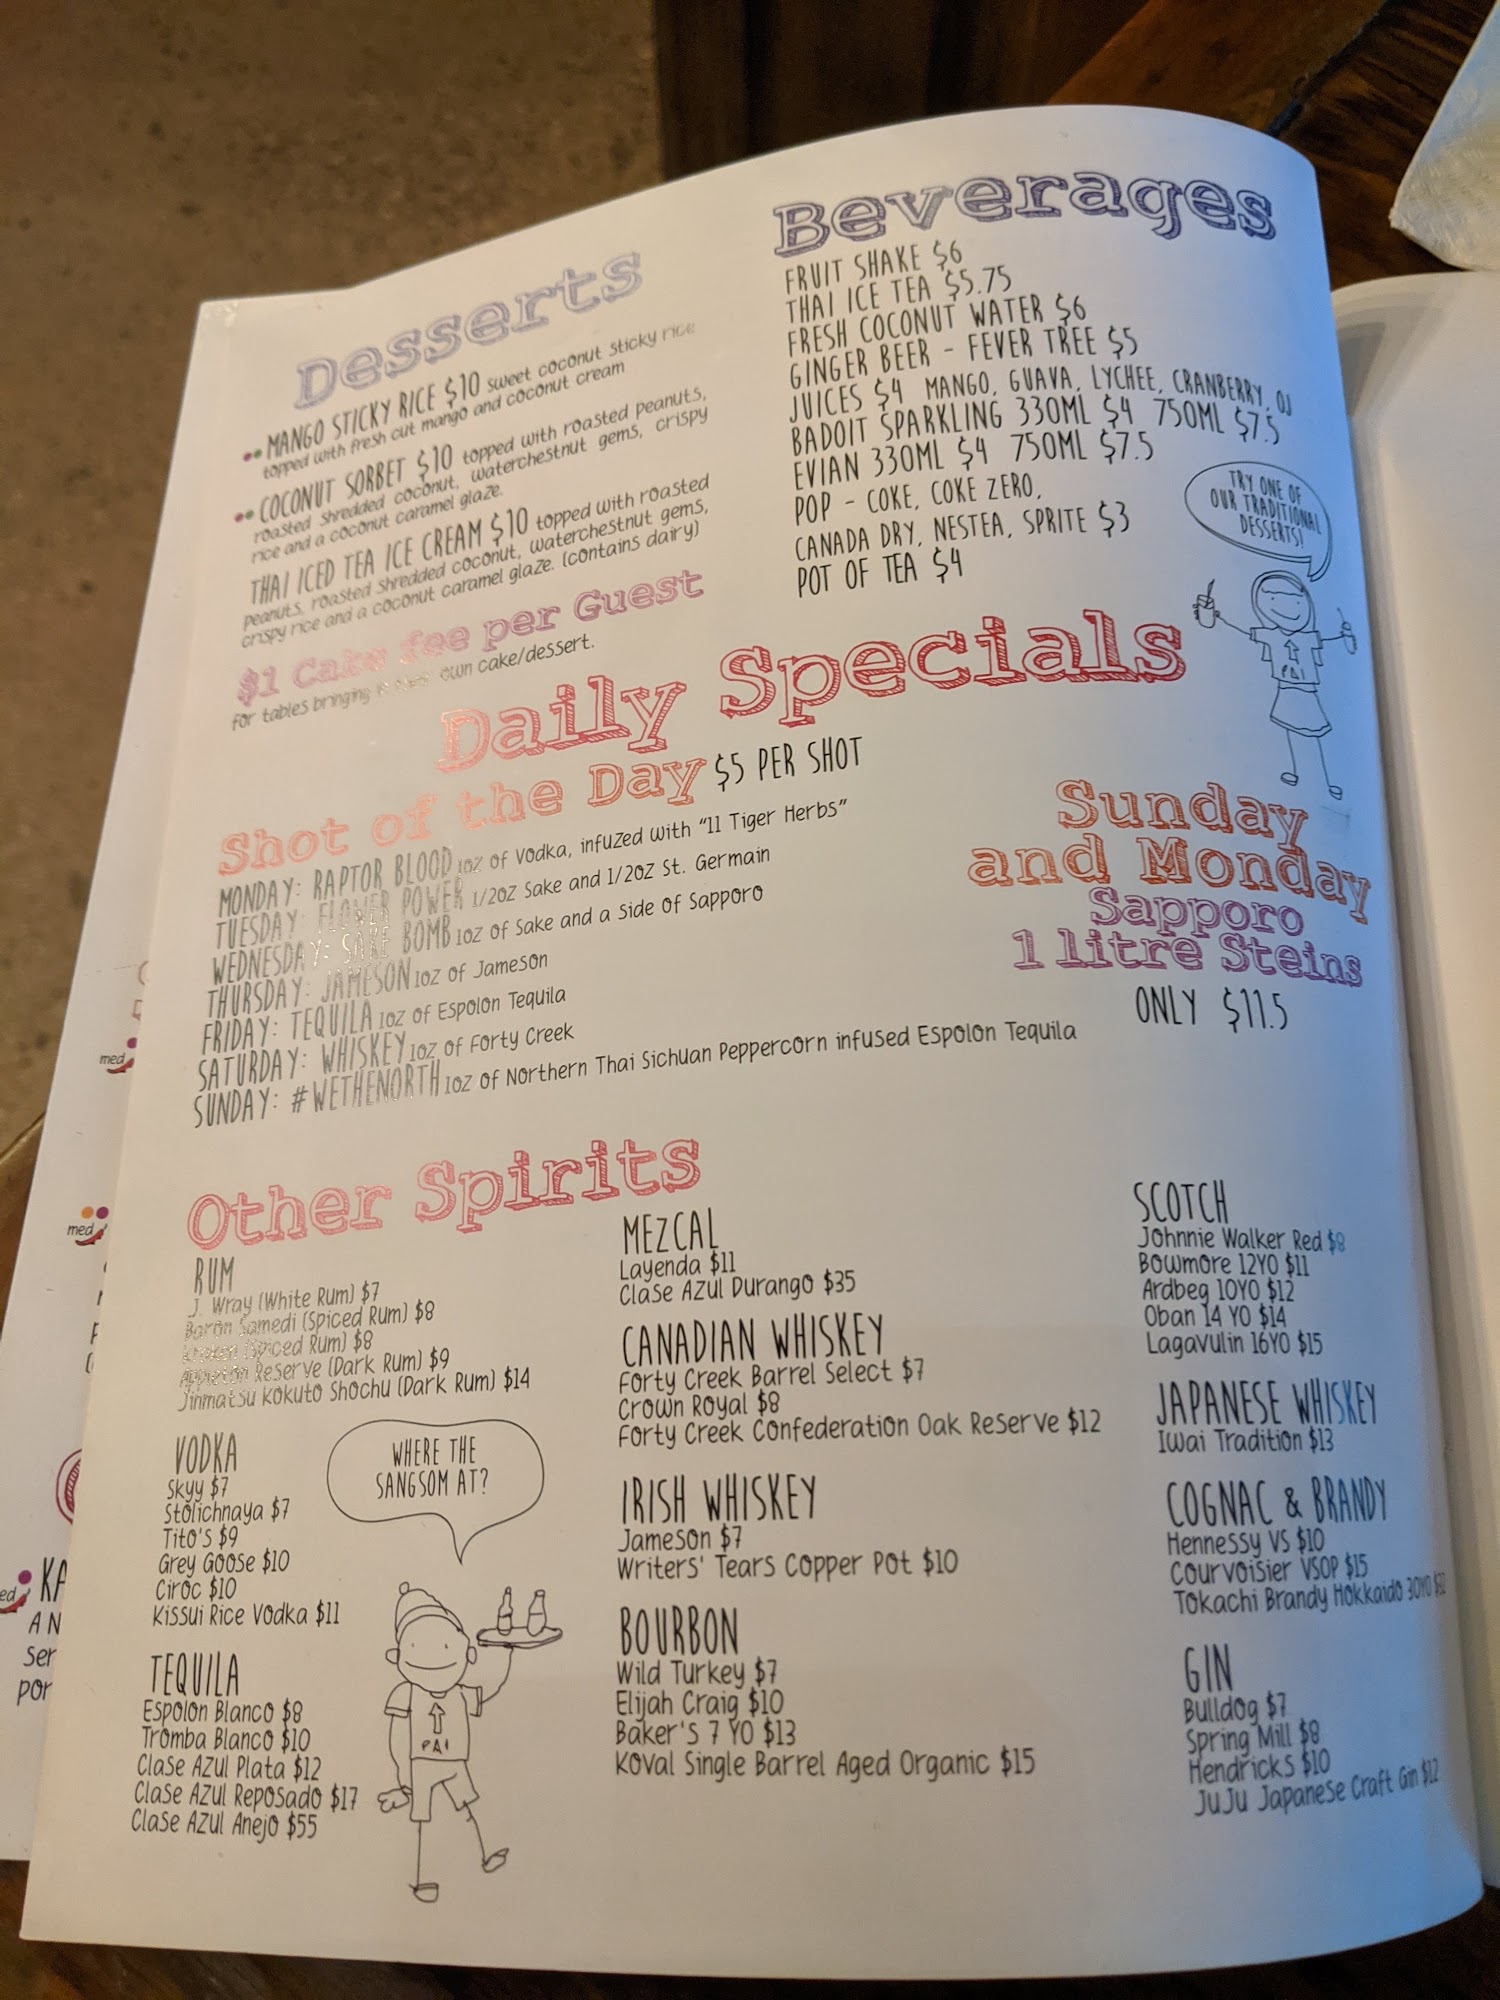 Desserts
MANGO STICKY RICE $10 sweet coconut sticky rice
topped with fresh cut mango and coconut cream
COCONUT SORBET $10 topped with roasted peanuts,
roasted shredded coconut, waterchestnut gems, crispy
rice and a coconut caramel glaze.
THAI ICED TEA ICE CREAM $10 topped with roasted
peanuts, roasted shredded coconut, waterchestnut gems,
crispy rice and a coconut caramel glaze. (contains dairy)
$1 Cake fee per Guest
for tables bringing in their own cake/dessert.
Beverages
FRUIT SHAKE $6
THAI ICE TEA $5.75
FRESH COCONUT WATER $6
GINGER BEER - FEVER TREE $5
JUICES $4 MANGO, GUAVA, LYCHEE, CRANBERRY, OJ
BADOIT SPARKLING 330ML $4 750ML $7.5
EVIAN 330ML $4 750ML $7.5
POP - COKE, COKE ZERO,
CANADA DRY, NESTEA, SPRITE $3
POT OF TEA $4
TRY ONE OF
OUR TRADITIONAL
DESSERTS!
PAI
Daily Specials
Shot of the Day $5 PER SHOT
MONDAY: RAPTOR BLOOD 1oz of Vodka, infuzed with "11 Tiger Herbs"
TUESDAY: FLOWER POWER 1/2oz Sake and 1/2oz St. Germain
WEDNESDAY: SAKE BOMB 1oz of Sake and a side of Sapporo
THURSDAY: JAMESON 1oz of Jameson
FRIDAY: TEQUILA 1oz of Espolon Tequila
SATURDAY: WHISKEY 1oz of Forty Creek
SUNDAY: #WETHENORTH 1oz of Northern Thai Sichuan Peppercorn infused Espolon Tequila
Sunday
and Monday
Sapporo
1 litre Steins
ONLY $11.5
Other Spirits
RUM
J. Wray (White Rum) $7
Baron Samedi (Spiced Rum) $8
Kraken (Spiced Rum) $8
Appleton Reserve (Dark Rum) $9
Jinmatsu Kokuto Shochu (Dark Rum) $14
VODKA
Skyy $7
Stolichnaya $7
Tito's $9
Grey Goose $10
Ciroc $10
Kissui Rice Vodka $11
WHERE THE
SANGSOM AT?
PAI
TEQUILA
Espolon Blanco $8
Tromba Blanco $10
Clase Azul Plata $12
Clase Azul Reposado $17
Clase Azul Anejo $55
MEZCAL
Layenda $11
Clase Azul Durango $35
CANADIAN WHISKEY
Forty Creek Barrel Select $7
Crown Royal $8
Forty Creek Confederation Oak Reserve $12
IRISH WHISKEY
Jameson $7
Writers' Tears Copper Pot $10
BOURBON
Wild Turkey $7
Elijah Craig $10
Baker's 7 YO $13
Koval Single Barrel Aged Organic $15
SCOTCH
Johnnie Walker Red $8
Bowmore 12YO $11
Ardbeg 10YO $12
Oban 14 YO $14
Lagavulin 16YO $15
JAPANESE WHISKEY
Iwai Tradition $13
COGNAC & BRANDY
Hennessy VS $10
Courvoisier VSOP $15
Tokachi Brandy Hokkaido 30YO
GIN
Bulldog $7
Spring Mill $8
Hendricks $10
JuJu Japanese Craft Gin $12
med
med
KA
AN
ser
por